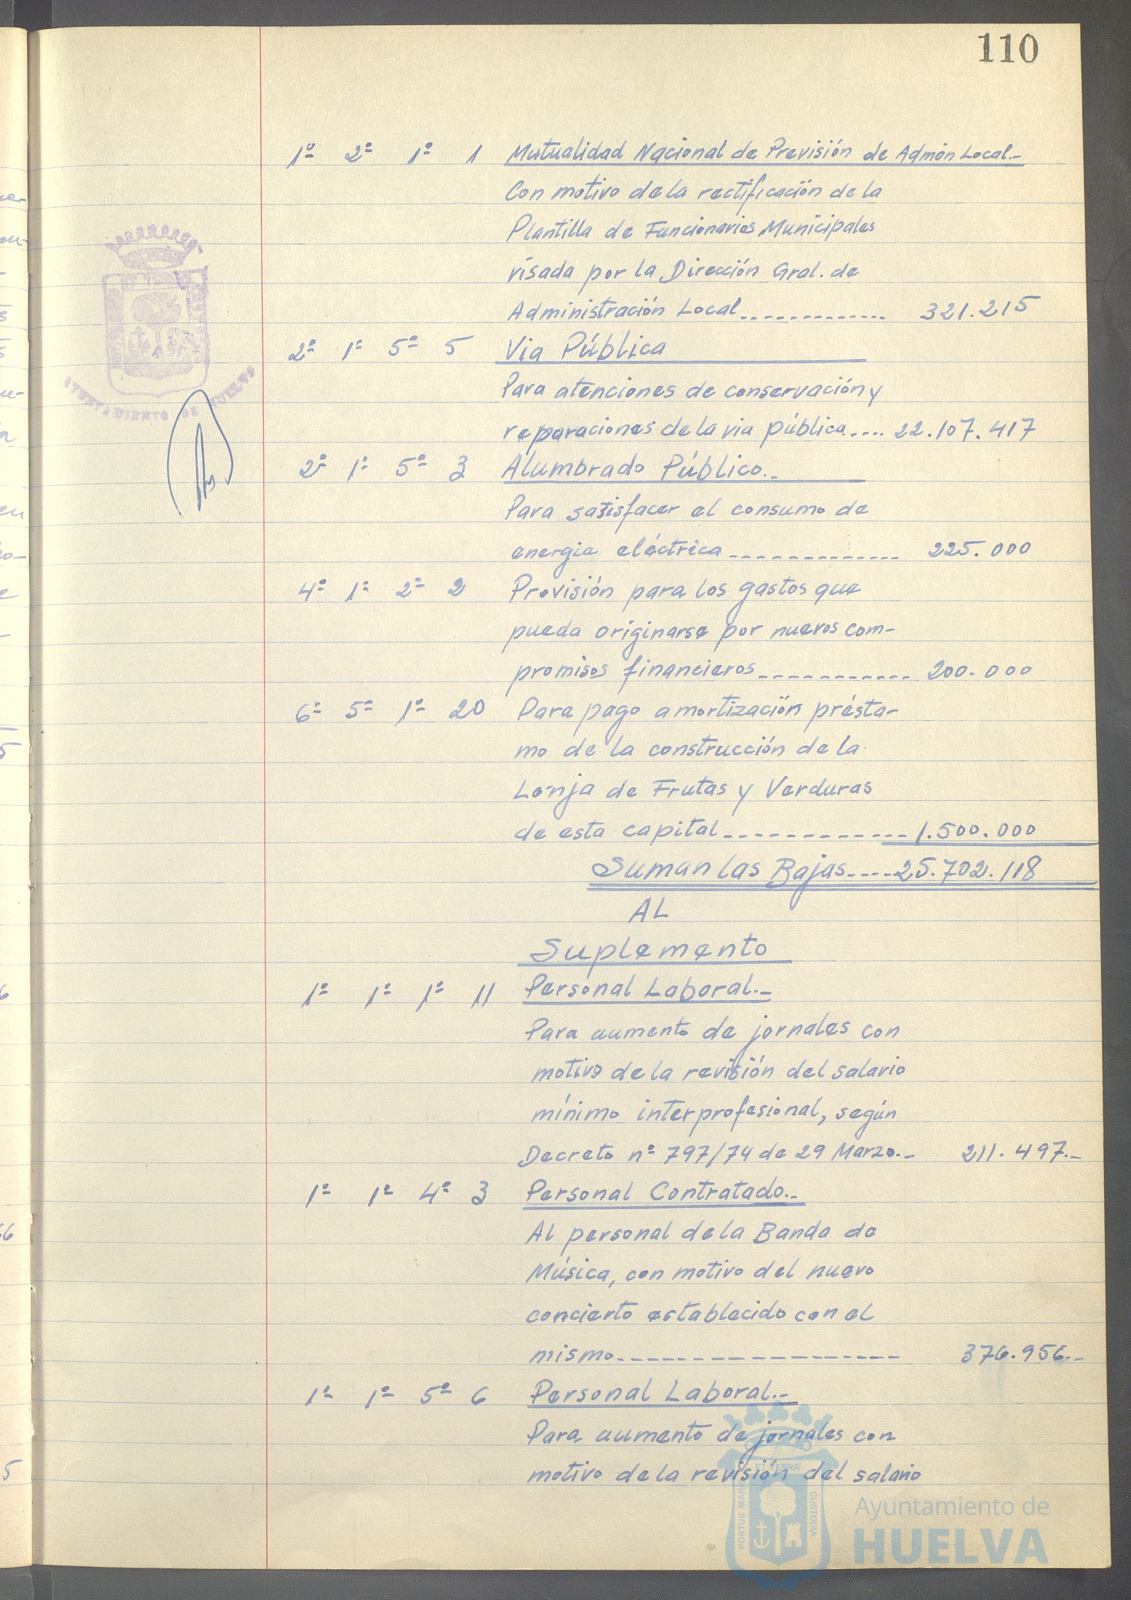 110
1º 2º 1º 1 Mutualidad Nacional de Previsión de Admón Local.-
Con motivo de la rectificación de la
Plantilla de Funcionarios Municipales
visada por la Dirección Gral. de
Administración Local............. 321.215
2º 1º 5º 5 Via Pública
Para atenciones de conservación y
reparaciones de la via pública.... 22.107.417
2º 1º 5º 3 Alumbrado Público.-
Para satisfacer el consumo de
energia eléctrica............. 225.000
4º 1º 2º 2 Provisión para los gastos que
pueda originarse por nuevos com-
promisos financieros........... 200.000
6º 5º 1º 20 Para pago amortización présta-
mo de la construcción de la
Lonja de Frutas y Verduras
de esta capital............. 1.500.000
Suman las Bajas....25.702.118
AL
Suplemento
1º 1º 1º 11 Personal Laboral.-
Para aumento de jornales con
motivo de la revisión del salario
mínimo interprofesional, según
Decreto nº 797/74 de 29 Marzo.- 211.497.-
1º 1º 4º 3 Personal Contratado.-
Al personal de la Banda de
Música, con motivo del nuevo
concierto establecido con el
mismo.................... 376.956.-
1º 1º 5º 6 Personal Laboral.-
Para aumento de jornales con
motivo de la revisión del salario
AYUNTAMIENTO DE HUELVA
PORTUS MARIS ET TERRÆ CUSTODIA
Ayuntamiento de
HUELVA